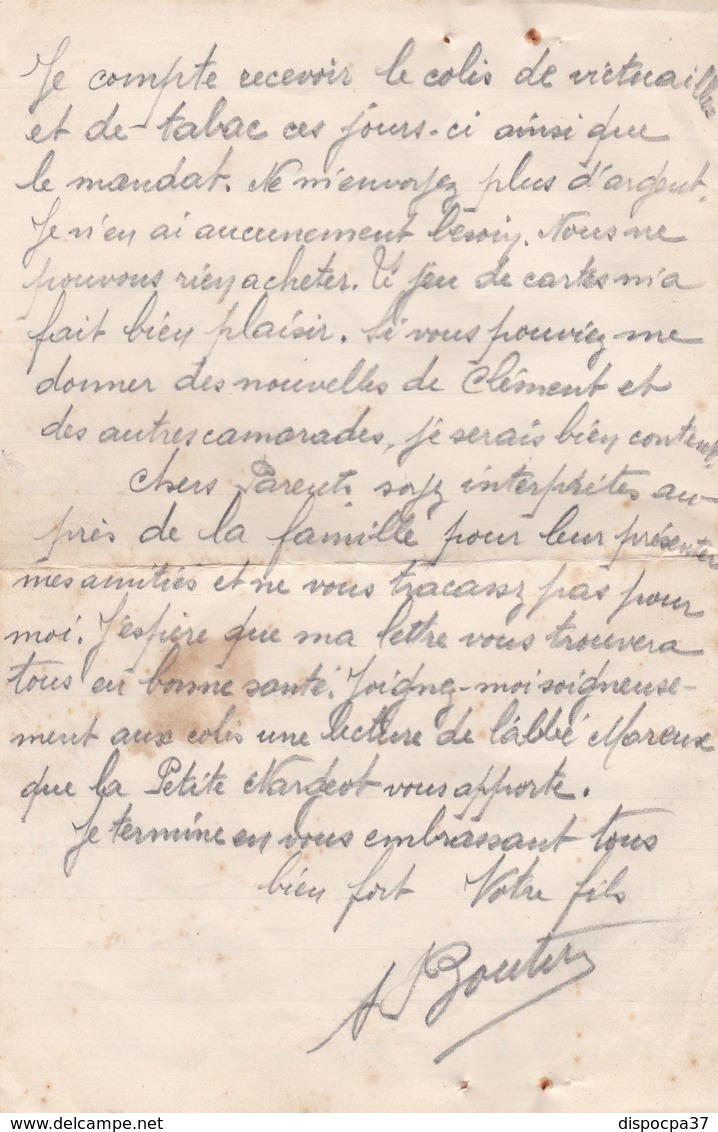 Je compte recevoir le colis de victuailles
et de tabac ces jours-ci ainsi que
le mandat. Ne m'envoyez plus d'argent.
Je n'en ai aucunement besoin. Nous ne
pouvons rien acheter. Le jeu de cartes m'a
fait bien plaisir. Si vous pouviez me
donner des nouvelles de Clément et
des autres camarades, je serais bien content.
Chers Parents soyez interprêtes au-
près de la famille pour leur présenter
mes amitiés et ne vous tracassez pas pour
moi. J'espère que ma lettre vous trouvera
tous en bonne santé. Joignez-moi soigneuse-
ment aux colis une lecture de l'abbé Moreux
que la Petite Nargeot vous apporte.
Je termine en vous embrassant tous
bien fort Votre fils
dispocpa37